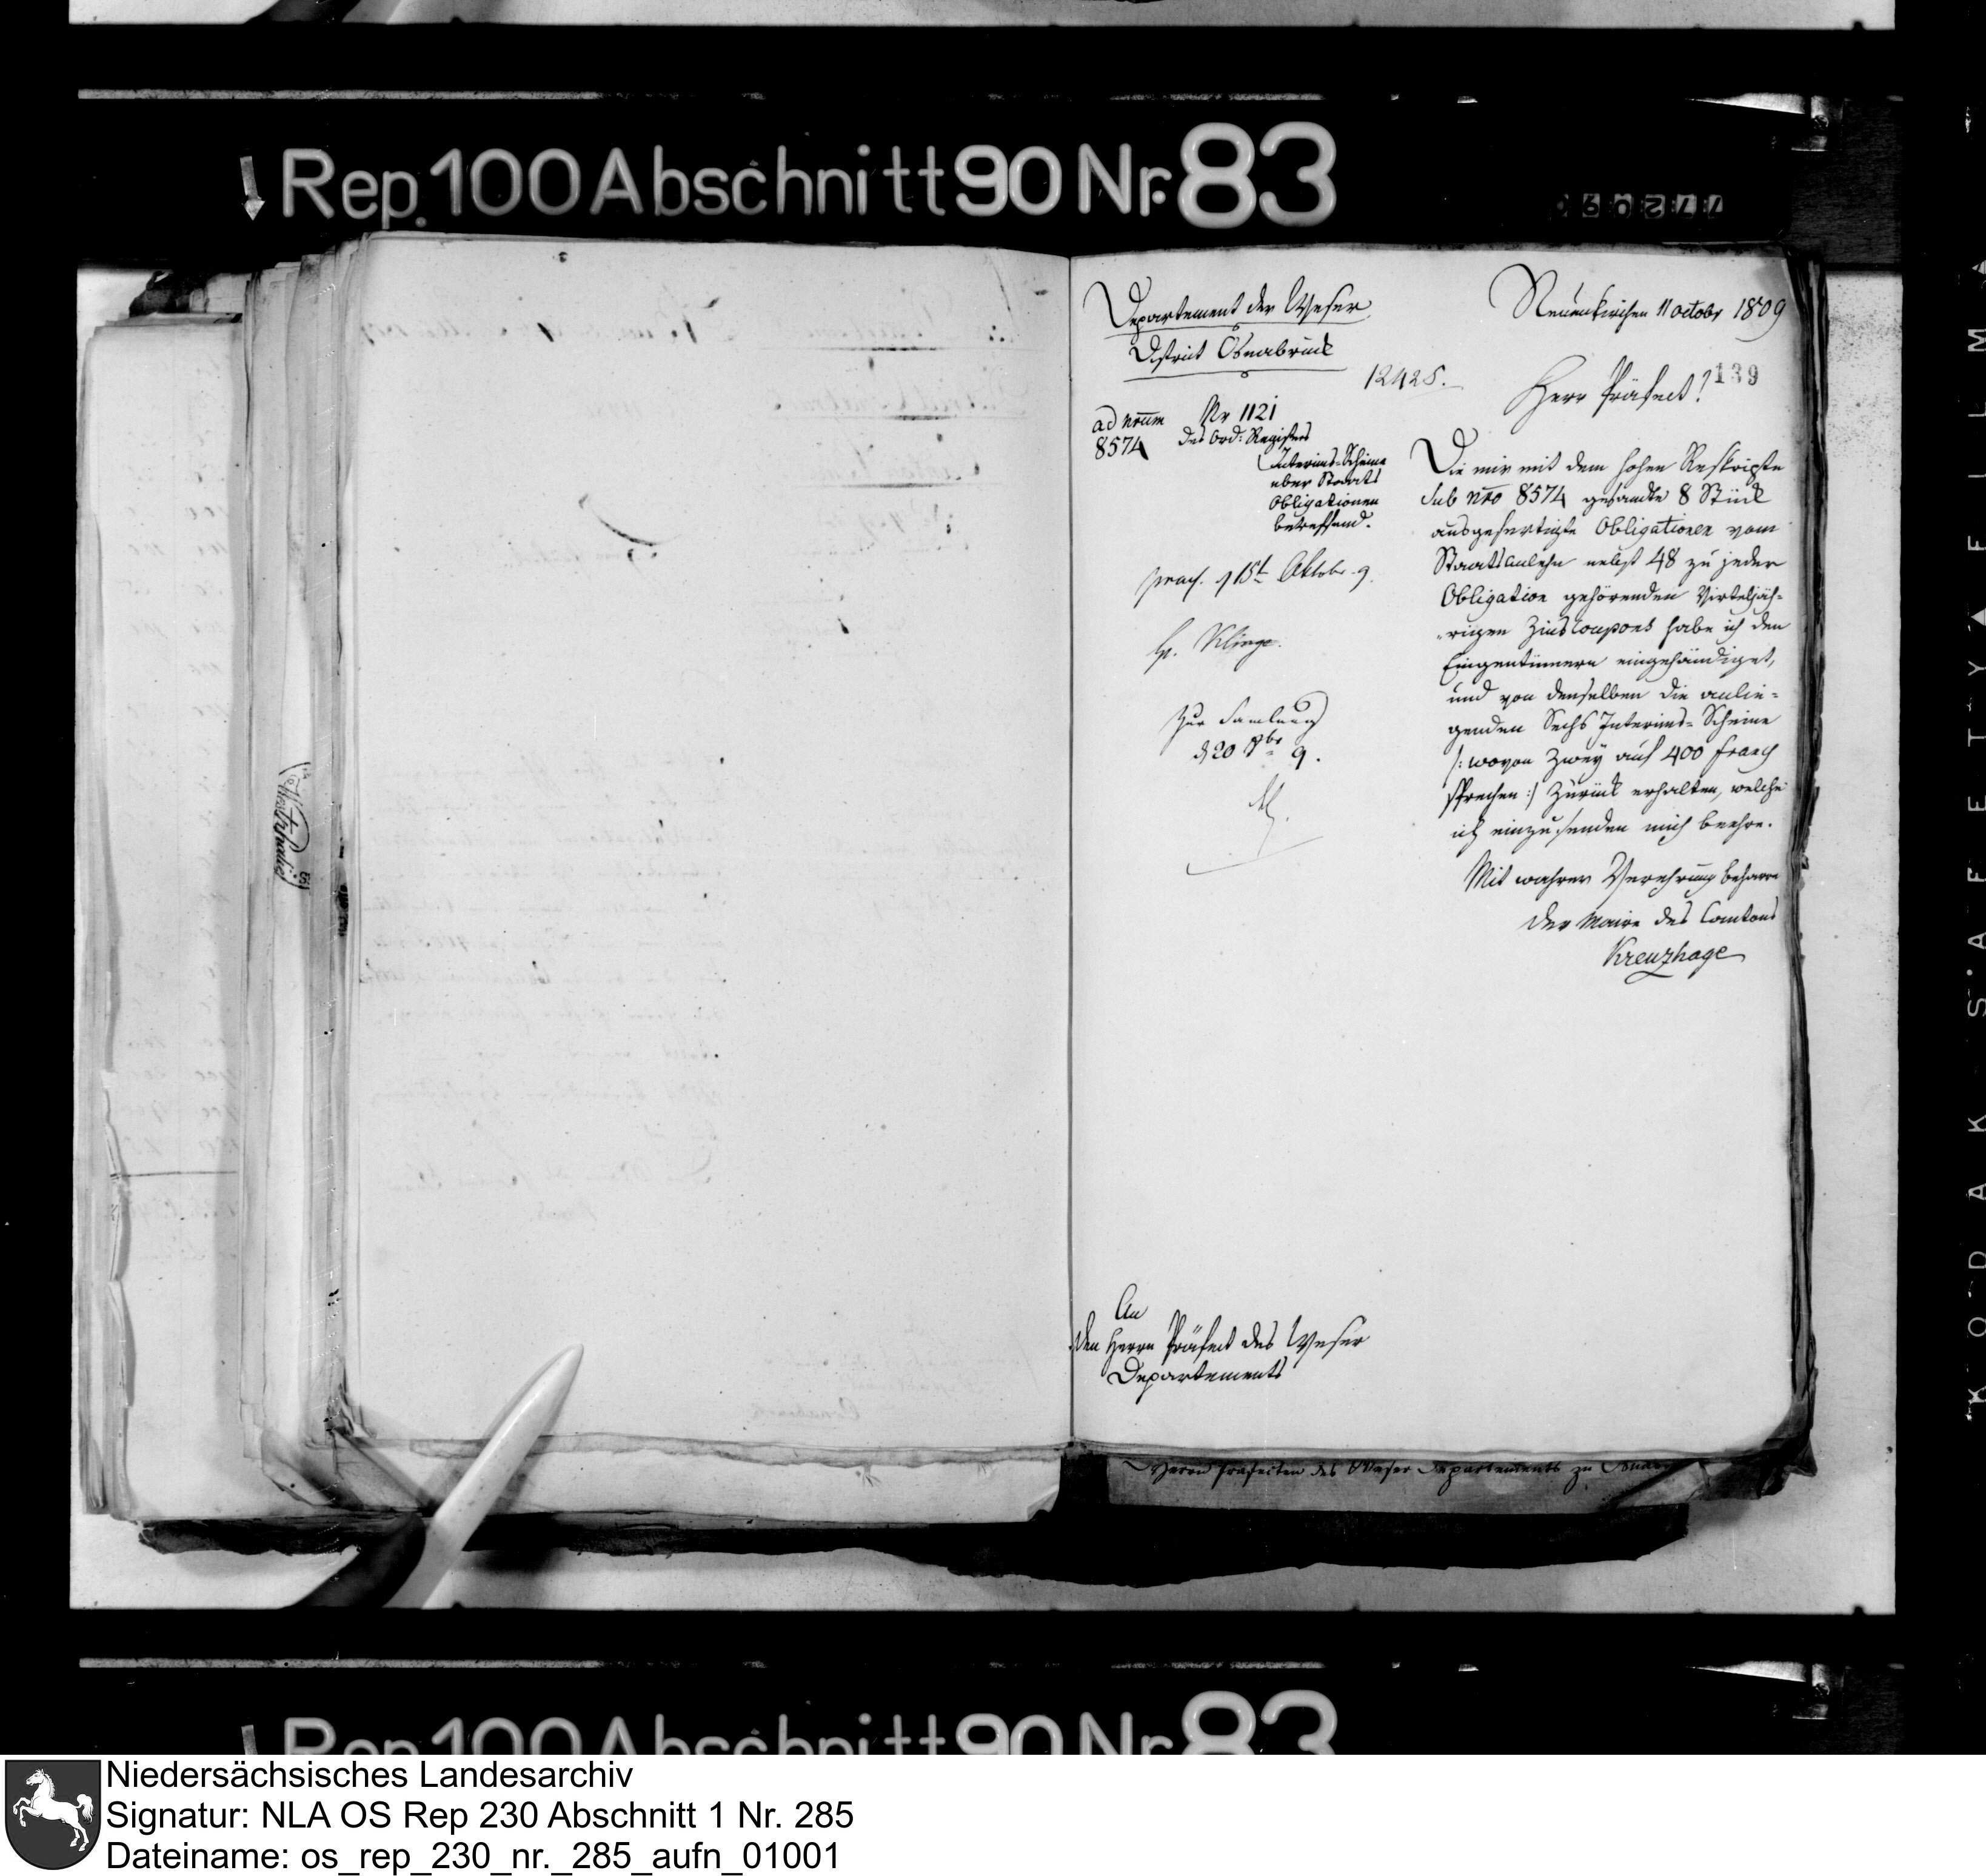 Rep. 100 Abschnitt 90 Nr. 83
Departement der Weser
District Osnabrück
Neuenkirchen 11 octobr 1809
12425.
139
Herr Präfect!
ad nrum
8574
Nr 1121
des Ord: Registers
Interims-Scheine
über Staats
Obligationen
betreffend.
praes. d 15t Oktobr. 9.
H. Klinge.
Zur Samlung
d 20 8br 9.
Die mir mit dem hohen Reskripte
sub nro 8574 gesandte 8 Stück
ausgefertigte Obligationen vom
Staatsanlehn nebst 48 zu jeder
Obligation gehörenden Virteljäh-
rigen Zinscoupons habe ich den
Eingentümern eingehändiget,
und von denselben die anlie-
genden Sechs Interims-Scheine
/: wovon Zwey auf 400 Franc
sprechen :/ Zurück erhalten, welche
ich einzusenden mich beehre.
Mit wahrer Verehrung beharre
der Maire des Cantons
Kreuzhage
An
den Herrn Präfect des Weser
Departements
Herrn Praefecten des Weser Departements zu
KODAK SAFETY FILM
Rep. 100 Abschnitt 90 Nr. 83
Niedersächsisches Landesarchiv
Signatur: NLA OS Rep 230 Abschnitt 1 Nr. 285
Dateiname: os_rep_230_nr._285_aufn_01001